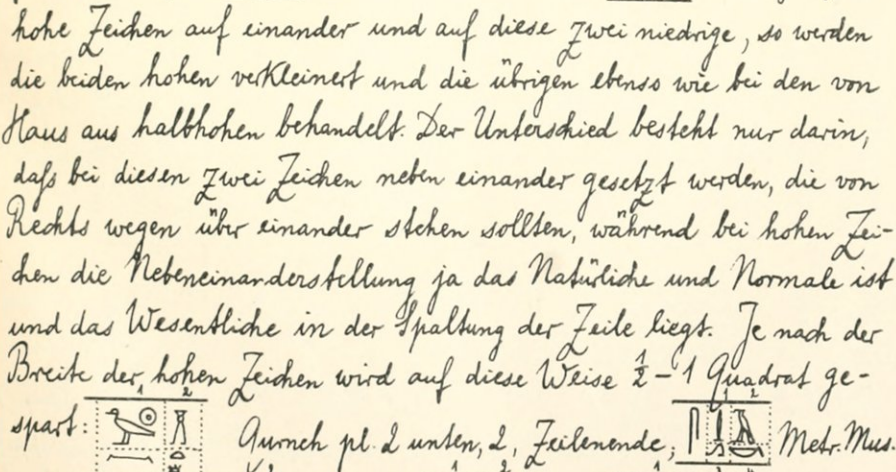 hohe Zeichen auf einander und auf diese zwei niedrige, so werden
die beiden hohen verkleinert und die übrigen ebenso wie bei den von
Haus aus halbhohen behandelt. Der Unterschied besteht nur darin,
daß bei diesen zwei Zeichen neben einander gesetzt werden, die von
Rechts wegen über einander stehen sollten, während bei hohen Zei-
chen die Nebeneinanderstellung ja das Natürliche und Normale ist
und das Wesentliche in der Spaltung der Zeile liegt. Je nach der
Breite der hohen Zeichen wird auf diese Weise ½ – 1 Quadrat ge-
spart: 1 2 Qurneh pl. 2 unten, 2, Zeilenende; 1 2 Metr. Mus.